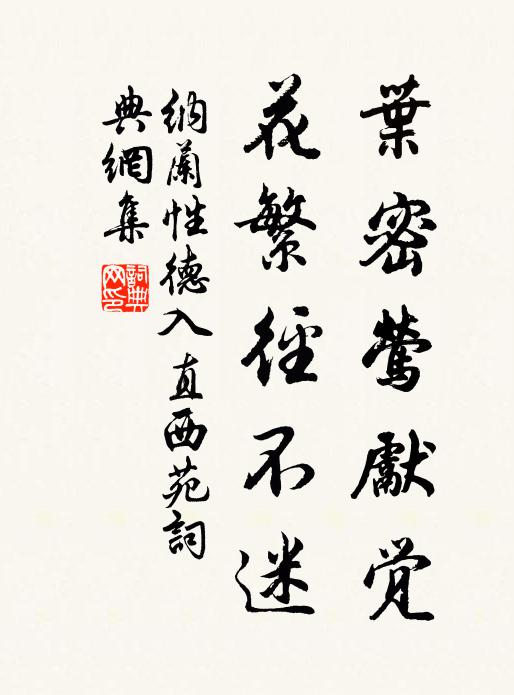 葉密鶯獻覚
花繁徑不迷
納蘭性德入直西苑詞
典網集
詞典
网印